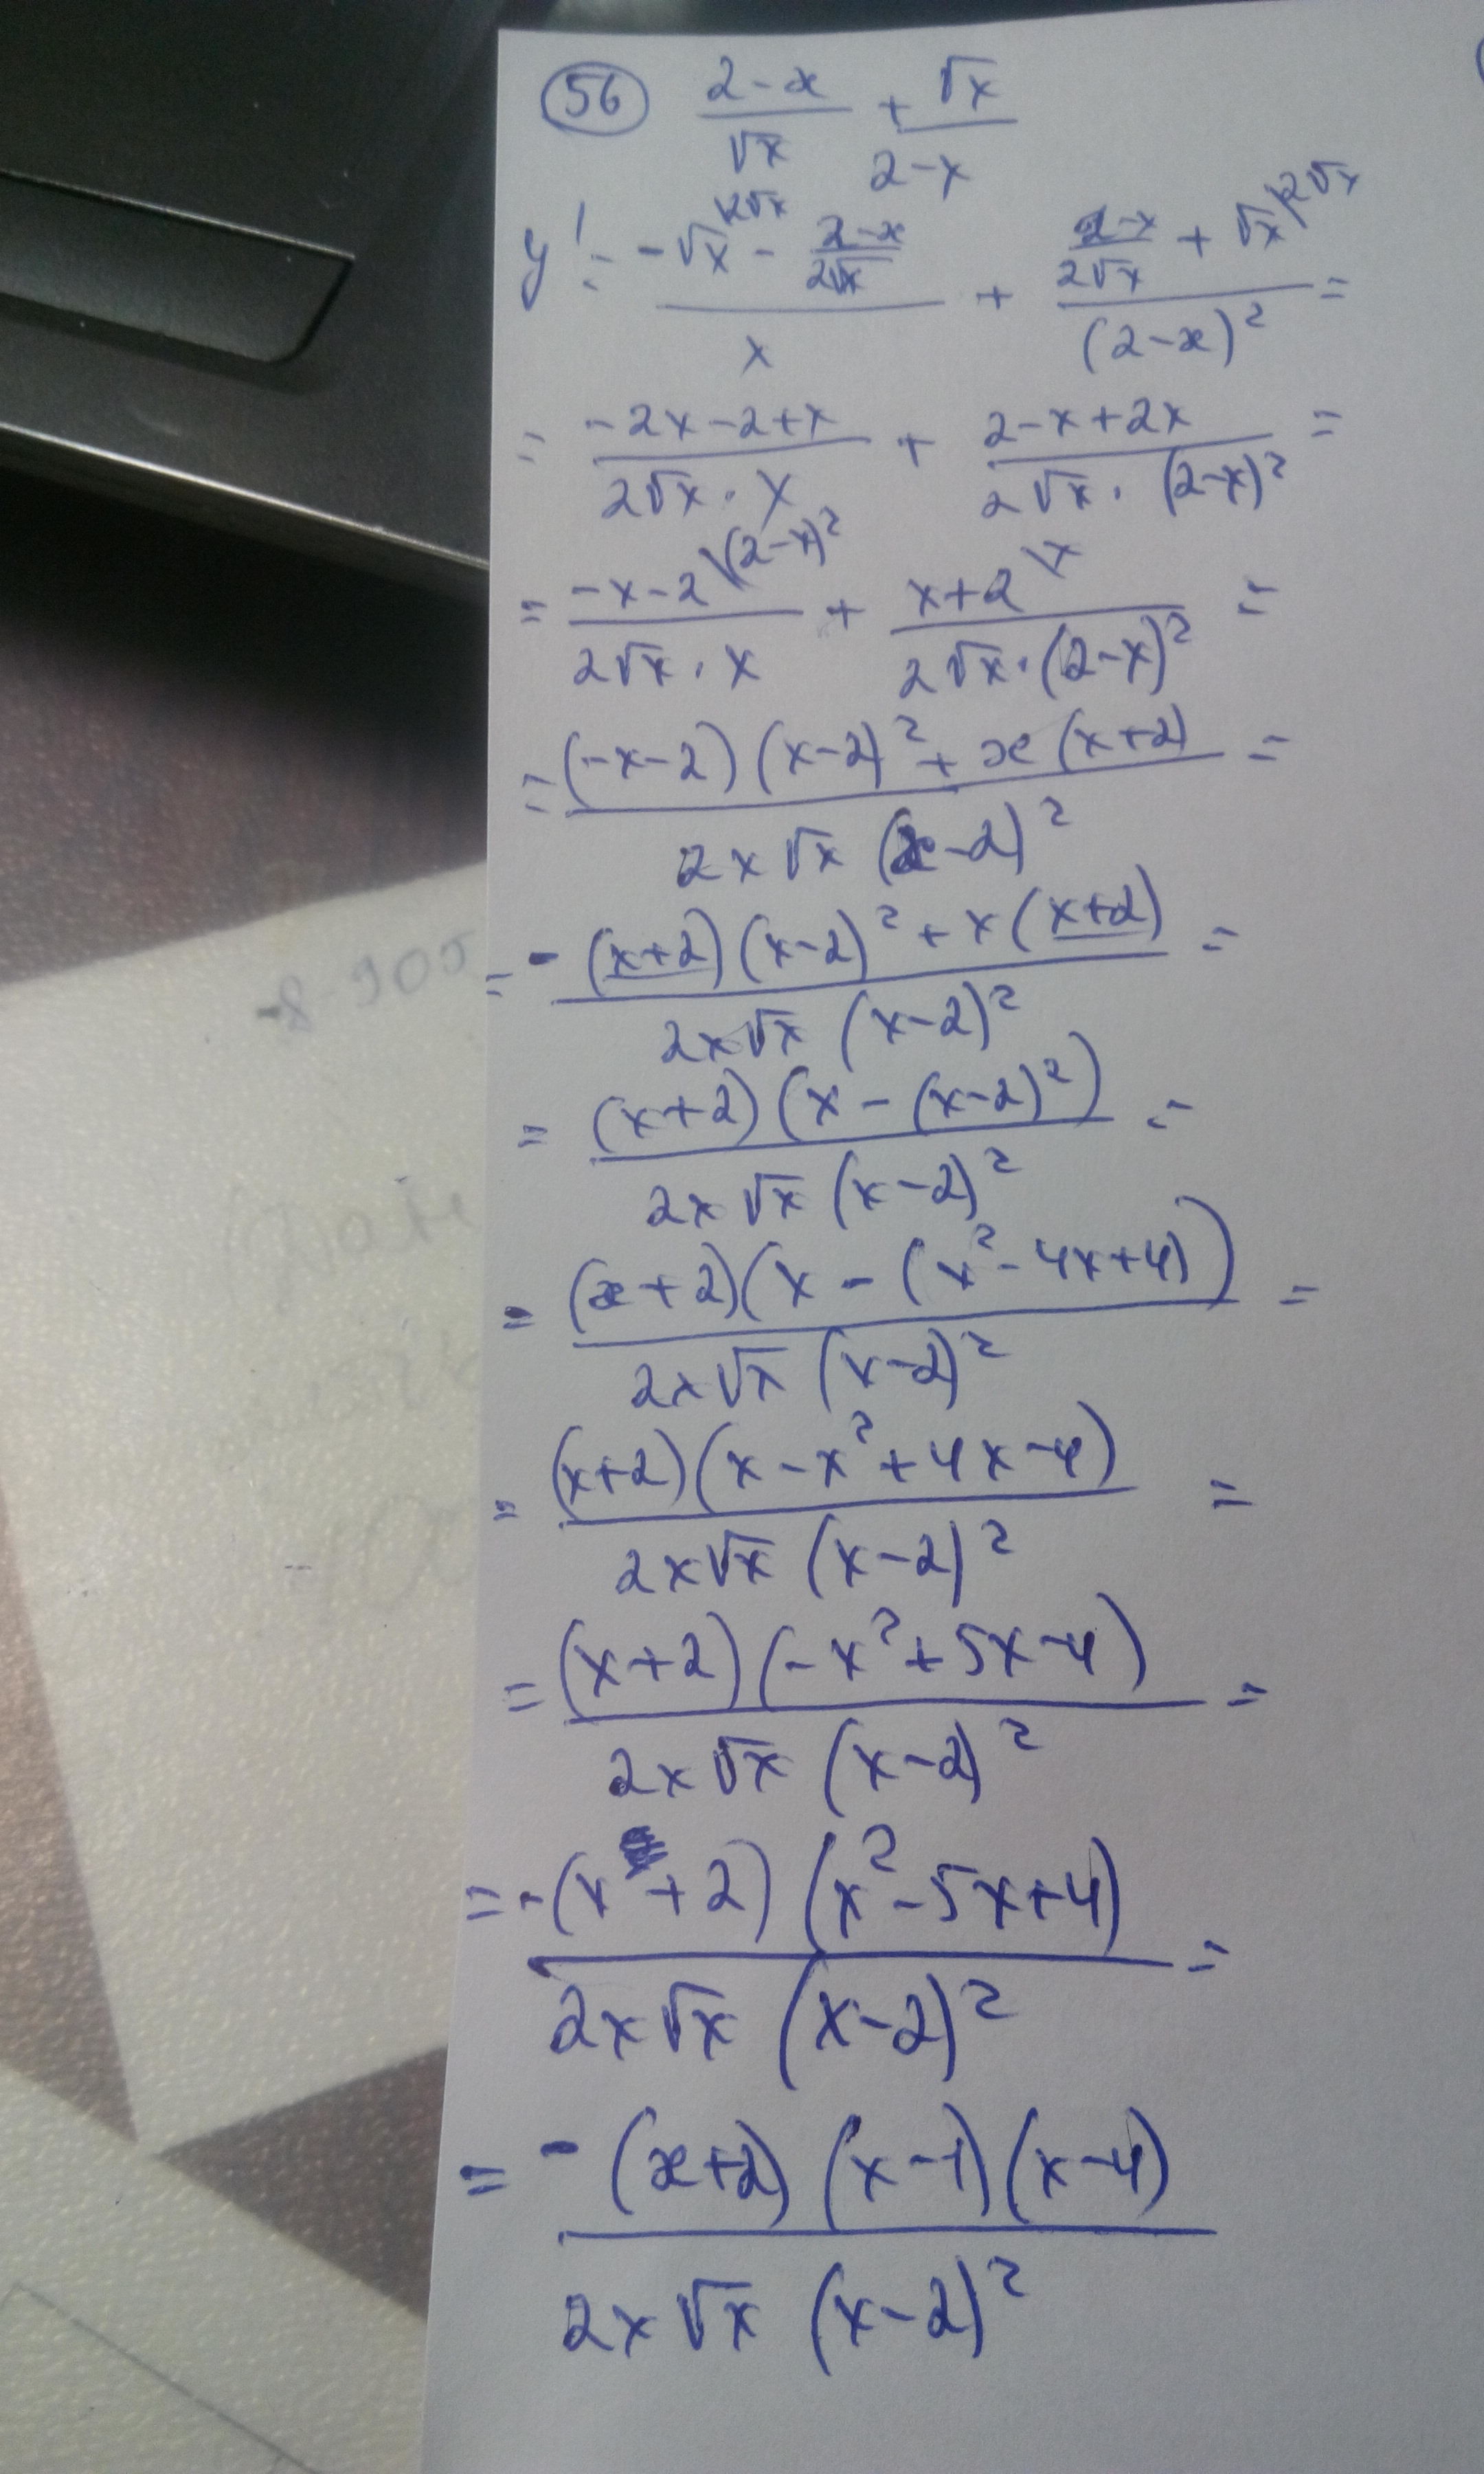 56 (2-x)/√x + √x/(2-x)
y' = (-√x^{\2√x} - (2-x)/(2√x))/x + ((2-x)/(2√x) + √x^{\2√x})/(2-x)² =
= (-2x-2+x)/(2√x · x) + (2-x+2x)/(2√x · (2-x)²) =
= (-x-2^{\(2-x)²})/(2√x · x) + (x+2^{\x})/(2√x · (2-x)²) =
= ((-x-2)(x-2)² + x(x+2))/(2x√x (x-2)²) =
= (-(x+2)(x-2)² + x(x+2))/(2x√x (x-2)²) =
= ((x+2)(x-(x-2)²))/(2x√x (x-2)²) =
= ((x+2)(x-(x²-4x+4)))/(2x√x (x-2)²) =
= ((x+2)(x-x²+4x-4))/(2x√x (x-2)²) =
= ((x+2)(-x²+5x-4))/(2x√x (x-2)²) =
= (-(x+2)(x²-5x+4))/(2x√x (x-2)²) =
= (-(x+2)(x-1)(x-4))/(2x√x (x-2)²)